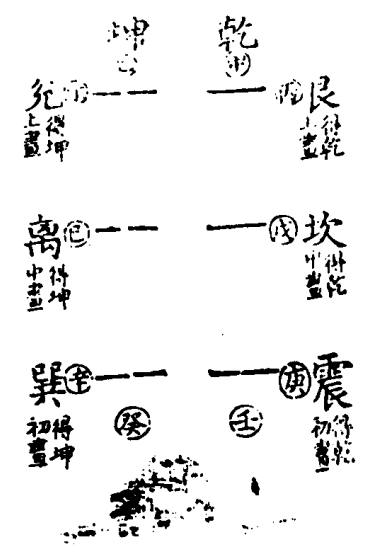 乾
坤
艮
得乾
上畫
兑
得坤
上畫
坎
戊
得乾
中畫
离
己
得坤
中畫
震
庚
得乾
初畫
巽
辛
得坤
初畫
壬
癸